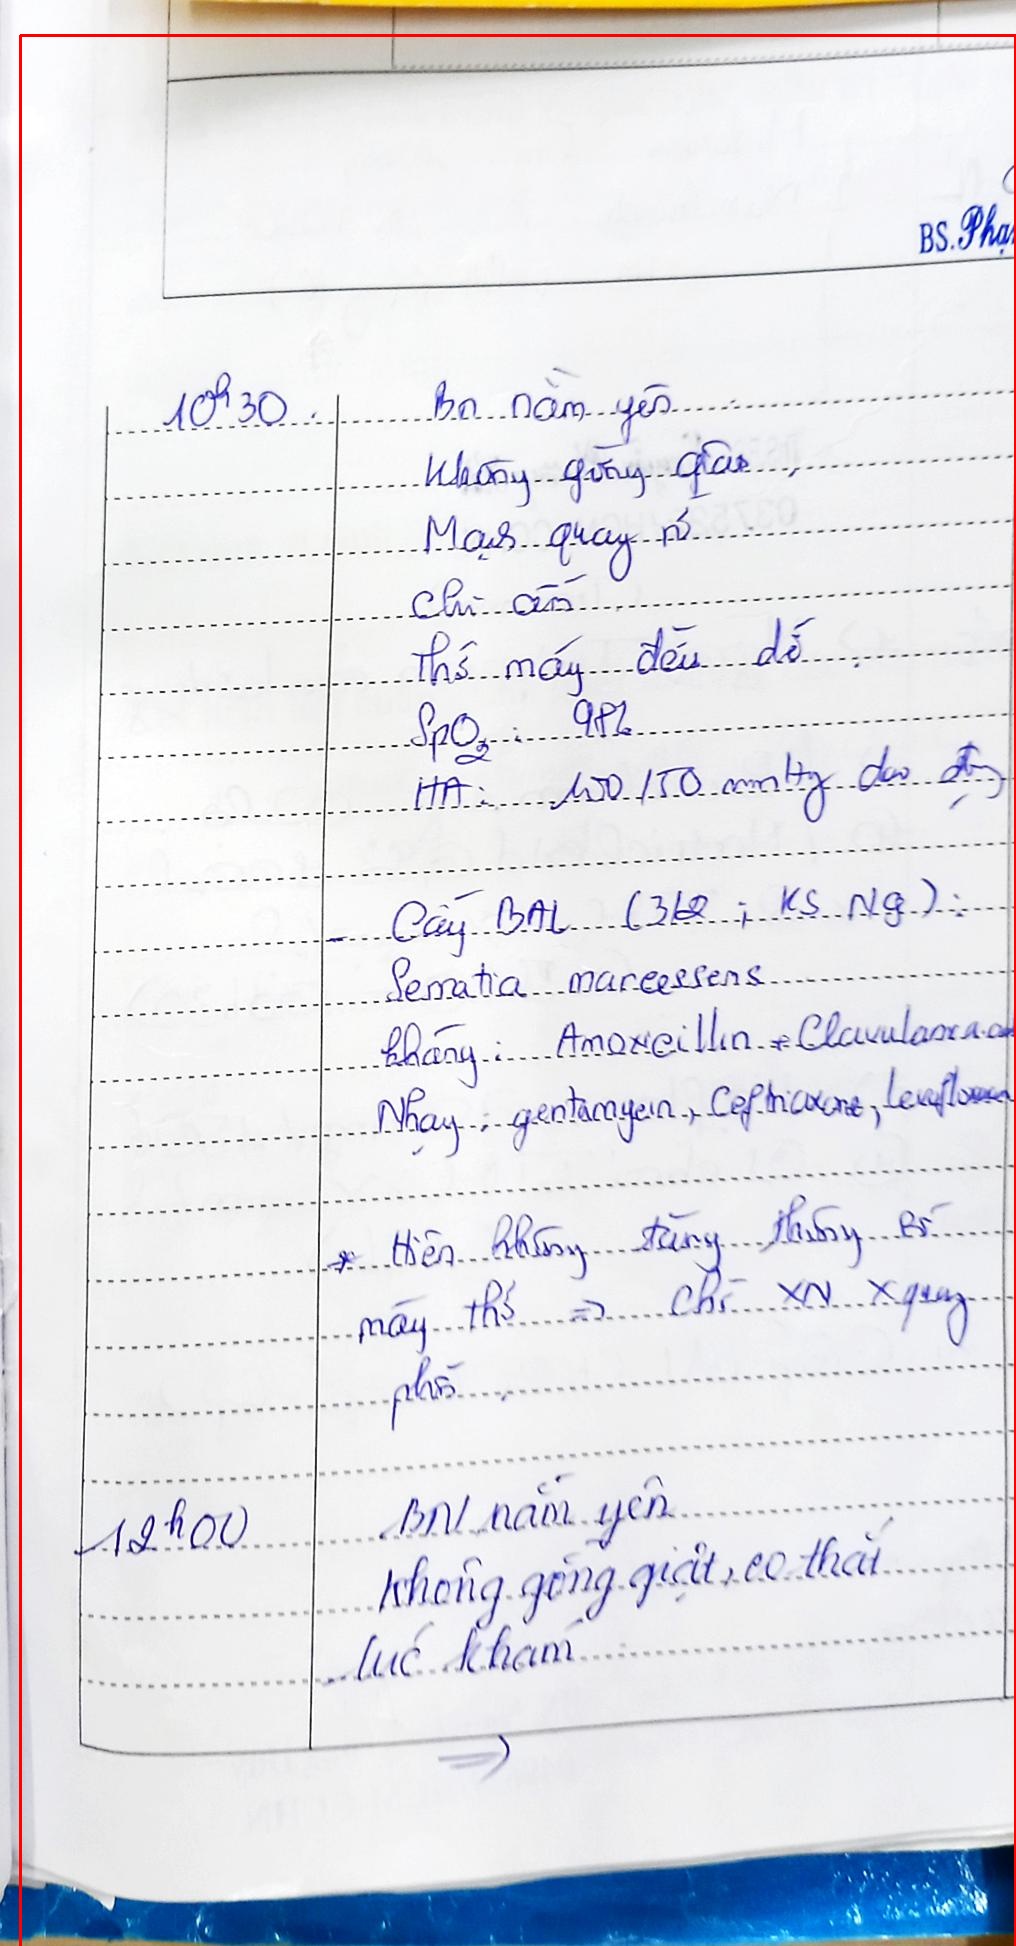 BS. Phạ
10h30. Bn nằm yên
Không gồng giật,
Mạch quay rõ
Chi ấm
Thở máy đều dễ.
SpO2: 98%
HA: 100/50 mmHg dao động
- Cấy BAL (; KS Ng):
Serratia marcessens
kháng: Amoxcillin + Clavulanic a
Nhạy: gentamycin, Ceftriaxone, levofloxacin
* Hiện không tăng thông số
máy thở => Chờ XN Xquang
phổi.
12h00 BN nằm yên
Không gồng giật, co thắt
lúc khám
=>